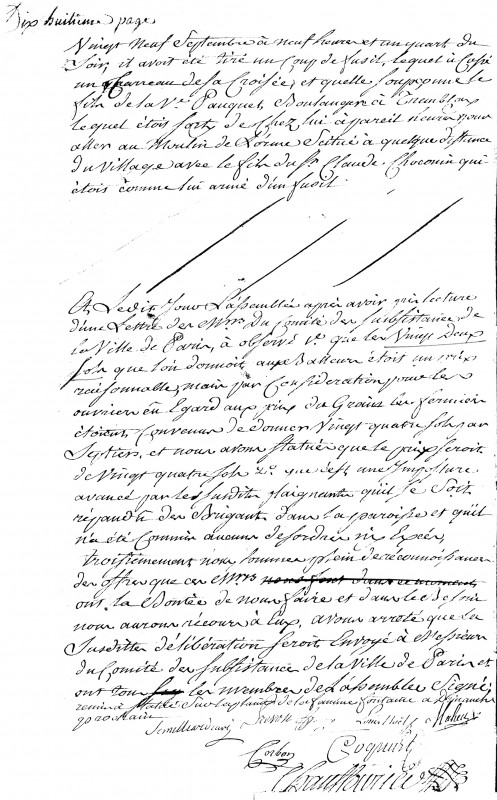 Dix huitieme page
Vingt Neuf Septembre à neuf heures et un quart du
Soir, il avoit été tiré un Coup de fusil, lequel à Cassé
un Carreau de sa Croisée, et quelle soupconne le
fils de la Ve Pauquet, Boulangere à
lequel étoit sorti de Chez lui à pareil heure pour
aller au Moulin de Lorme Scitué à quelque distance
du Village avec le fils du Sr Claude Choconin qui
étoit comme lui armé d'un fusil
Et Ledit Jour L'assemblée après avoir pris lecture
d'une Lettre de Mrs Du Comité des Subsistance de
la Ville de Paris, à observé 1o que les Vingt Deux
Sols que l'on donnoit aux Batteurs étoit un prix
raisonnable, mais par Consideration pour les
ouvriers en Egard aux prix du Grains les fermiers
étoient Convenus de donner Vingt quatre sols par
Septiers, et nous avons statuée que le prix seroit
de Vingt quatre sols 2o que c'est une Imposture
avancé par les susdits plaignants qu'il se soit
répandu des Brigant dans la paroisse et qu'il
n'a été Commis aucuns desordres ni Excès,
troisiemement nous sommes plein de reconnoissance
des offres que ces Mrs nous font dans ce moment
ont la Bonté de nous faire et dans le Besoin
nous aurons récour à Eux, avons arreté que la
Susditte délibération seroit Envoyé à Messieurs
du Comité des Subsistance de la Ville de Paris et
ont tous les membres de L'assemblée Signé,
Corbon Coquart